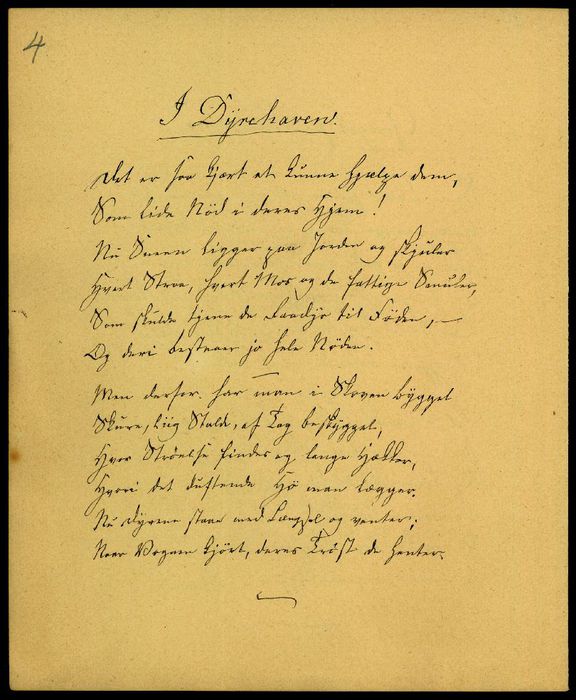 4
I Dyrehaven.
Det er saa kjært at kunne hjælpe dem,
Som lide Nöd i deres Hjem!
Nu Sneen ligger paa Jorden og skjuler
Hvert Straa, hvert Mos og de fattige Smuler,
Som skulde tjene de Raadyr til Föden, —
Og deri bestaaer jo hele Nöden.
Men derfor har man i Skoven bygget
Skure, liig Stalde, af Tag beskygget,
Hvor Ströelse findes og lange Hækker,
Hvori det duftende Hö man lægger.
Nu Dyrene staae med Længsel og venter;
Naar Vognen kjört, deres Tröst de henter.